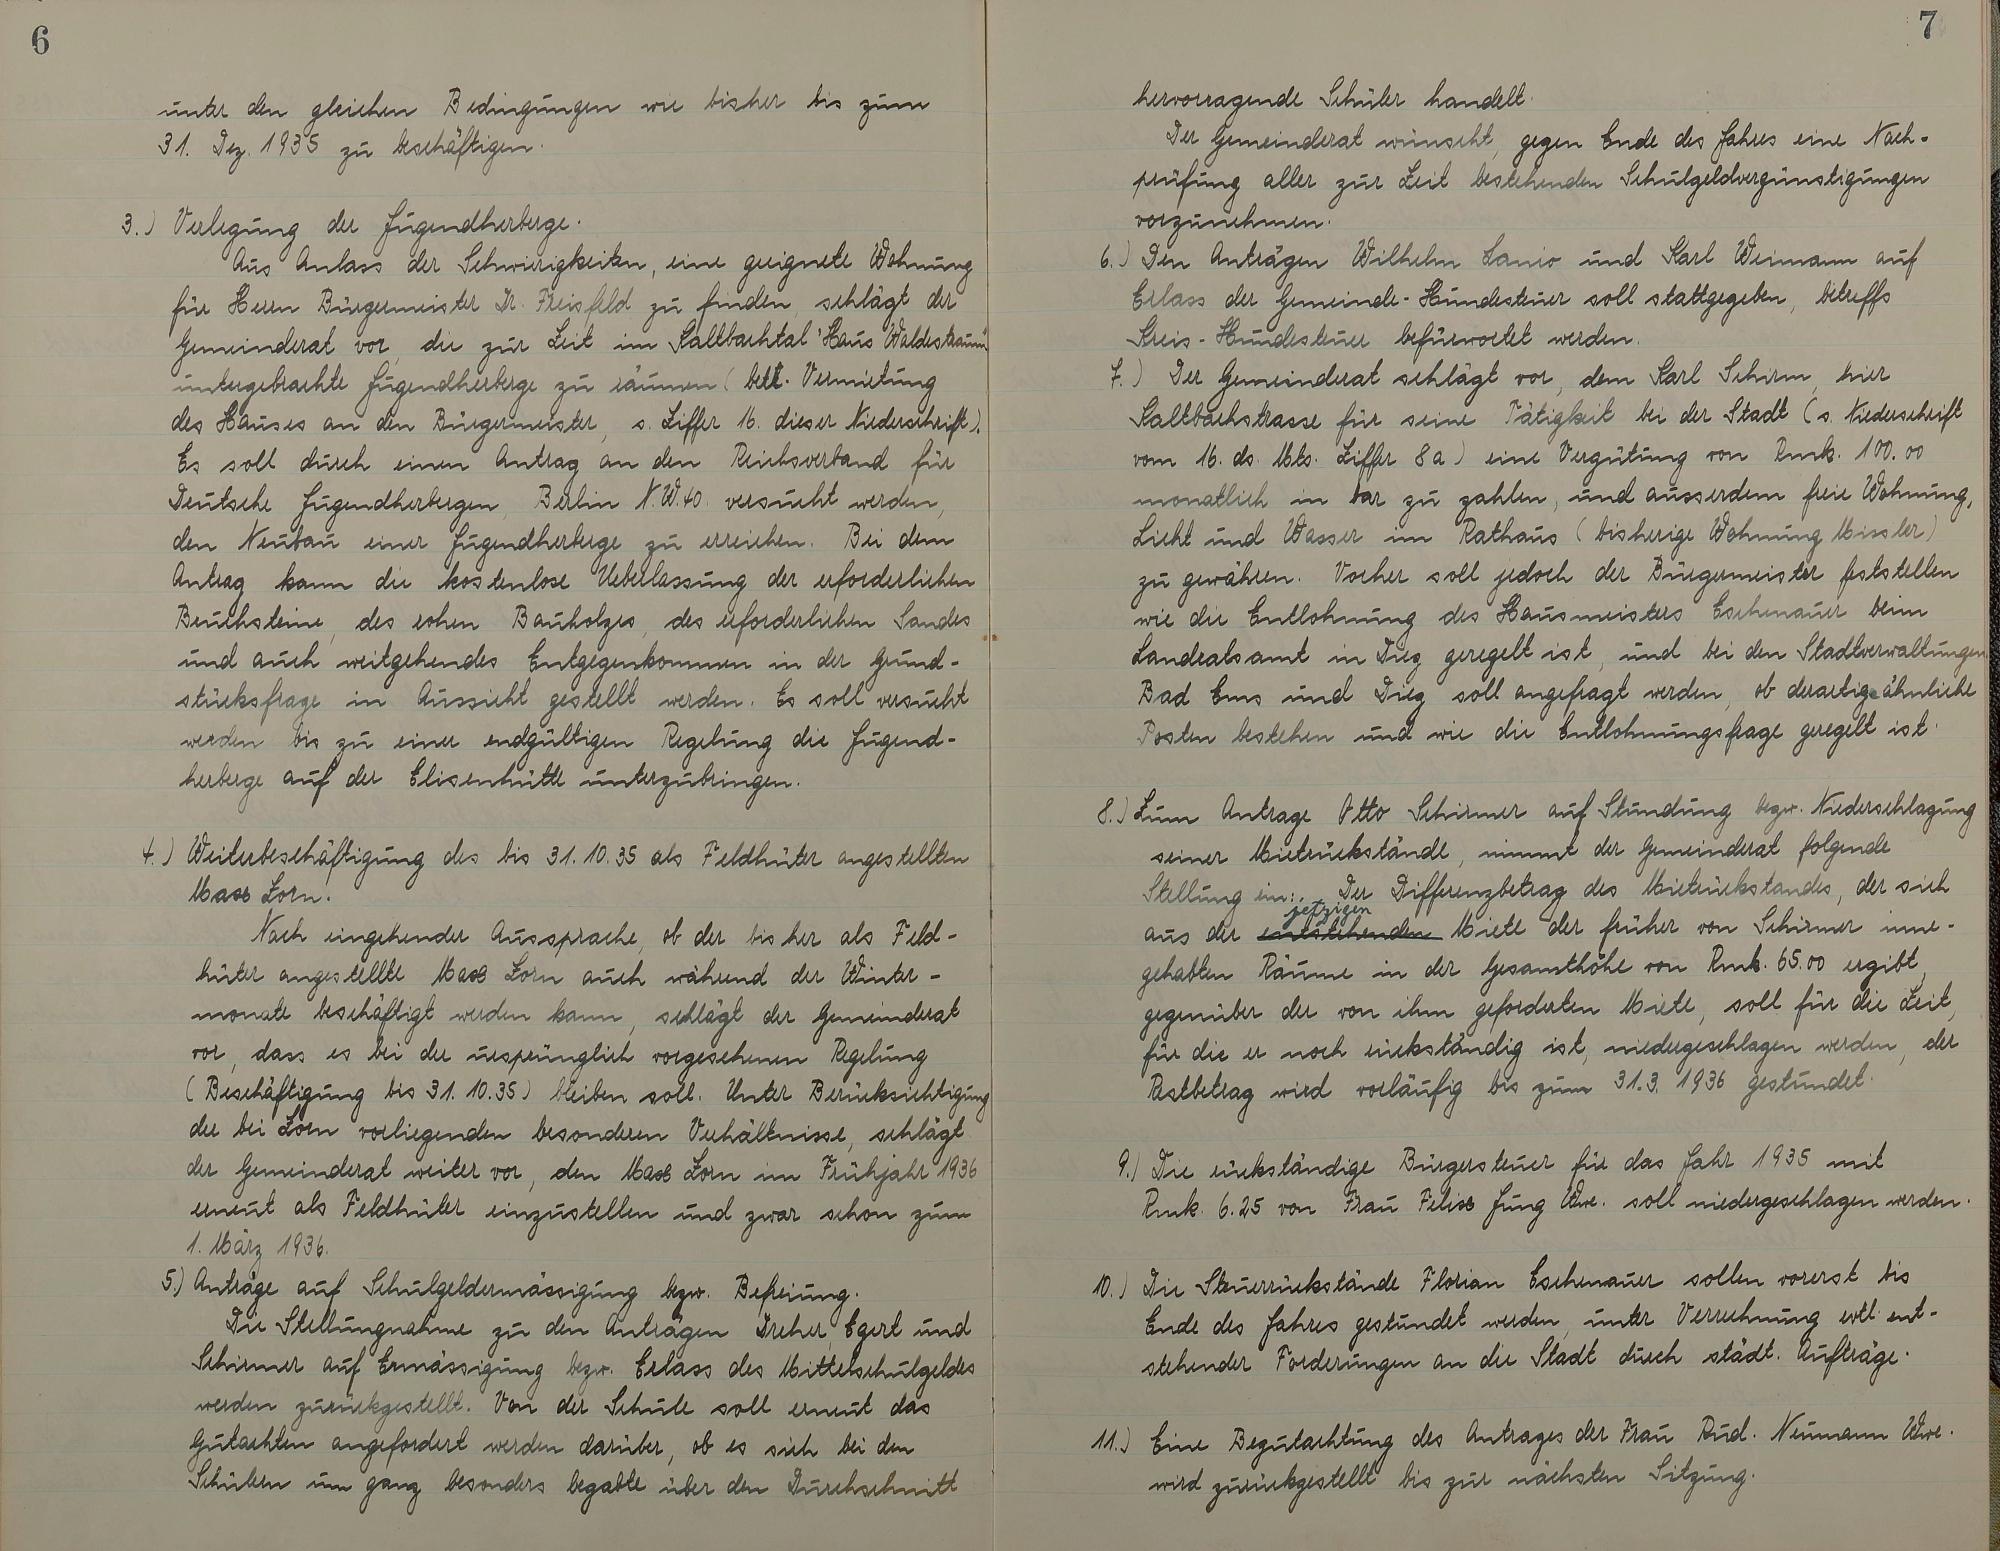 6
unter den gleichen Bedingungen wie bisher bis zum
31. Dez. 1935 zu beschäftigen.
3.) Verlegung der Jugendherberge.
Aus Anlass der Schwierigkeiten, eine geeignete Wohnung
für Herrn Bürgermeister Dr. Freisfeld zu finden, schlägt der
Gemeinderat vor, die zur Zeit im Kaltbachtal "Haus Waldestraum"
untergebrachte Jugendherberge zu räumen (betr. Vermietung
des Hauses an den Bürgermeister, s. Ziffer 16. dieser Niederschrift).
Es soll durch einen Antrag an den Reichsverband für
Deutsche Jugendherbergen, Berlin N.W.40. versucht werden,
den Neubau einer Jugendherberge zu erreichen. Bei dem
Antrag kann die kostenlose Ueberlassung der erforderlichen
Bruchsteine, des rohen Bauholzes, des erforderlichen Sandes
und auch weitgehendes Entgegenkommen in der Grund-
stücksfrage in Aussicht gestellt werden. Es soll versucht
werden bis zu einer endgültigen Regelung die Jugend-
herberge auf der Elisenhütte unterzubringen.
4.) Weiterbeschäftigung des bis 31.10.35 als Feldhüter angestellten
Max Zorn.
Nach eingehender Aussprache, ob der bisher als Feld-
hüter angestellte Max Zorn auch während der Winter-
monate beschäftigt werden kann, schlägt der Gemeinderat
vor, dass es bei der ursprünglich vorgesehenen Regelung
(Beschäftigung bis 31.10.35) bleiben soll. Unter Berücksichtigung
der bei Zorn vorliegenden besonderen Verhältnisse, schlägt
der Gemeinderat weiter vor, den Max Zorn im Frühjahr 1936
erneut als Feldhüter einzustellen und zwar schon zum
1. März 1936.
5.) Anträge auf Schulgeldermässigung bezw. Befreiung.
Die Stellungnahme zu den Anträgen Dreher, Egert und
Schirmer auf Ermässigung bezw. Erlass des Mittelschulgeldes
werden zurückgestellt. Von der Schule soll erneut das
Gutachten angefordert werden darüber, ob es sich bei den
Schülern um ganz besonders begabte über den Durchschnitt
7
hervorragende Schüler handelt.
Der Gemeinderat wünscht, gegen Ende des Jahres eine Nach-
prüfung aller zur Zeit bestehenden Schulgeldvergünstigungen
vorzunehmen.
6.) Den Anträgen Wilhelm Lanio und Karl Weimann auf
Erlass der Gemeinde-Hundesteuer soll stattgegeben, betreffs
Kreis-Hundesteuer befürwortet werden.
7.) Der Gemeinderat schlägt vor, dem Karl Schirm, hier
Kaltbachstrasse für seine Tätigkeit bei der Stadt (s. Niederschrift
vom 16. ds. Mts. Ziffer 8a) eine Vergütung von Rmk. 100.00
monatlich in bar zu zahlen, und ausserdem freie Wohnung,
Licht und Wasser im Rathaus (bisherige Wohnung Missler)
zu gewähren. Vorher soll jedoch der Bürgermeister feststellen
wie die Entlohnung des Hausmeisters Eschenauer beim
Landratsamt in Diez geregelt ist, und bei den Stadtverwaltungen
Bad Ems und Diez soll angefragt werden, ob derartige ähnliche
Posten bestehen und wie die Entlohnungsfrage geregelt ist.
8.) Zum Antrage Otto Schirmer auf Stundung bezw. Niederschlagung
seiner Mietrückstände, nimmt der Gemeinderat folgende
Stellung ein: Der Differenzbetrag des Mietrückstandes, der sich
jetzigen
aus der entstehenden Miete der früher von Schirmer inne-
gehabten Räume in der Gesamthöhe von Rmk. 65.00 ergibt,
gegenüber der von ihm geforderten Miete, soll für die Zeit,
für die er noch rückständig ist, niedergeschlagen werden, der
Restbetrag wird vorläufig bis zum 31.3.1936 gestundet.
9.) Die rückständige Bürgersteuer für das Jahr 1935 mit
Rmk. 6.25 von Frau Felix Jung Wwe. soll niedergeschlagen werden.
10.) Die Steuerrückstände Florian Eschenauer sollen vorerst bis
Ende des Jahres gestundet werden, unter Verrechnung evtl. ent-
stehender Forderungen an die Stadt durch städt. Aufträge.
11.) Eine Begutachtung des Antrages der Frau Rud. Neumann Wwe.
wird zurückgestellt bis zur nächsten Sitzung.